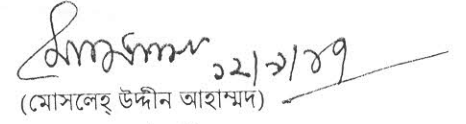 ১২/১/১৭
(মোসলেহ্ উদ্দীন আহাম্মদ)